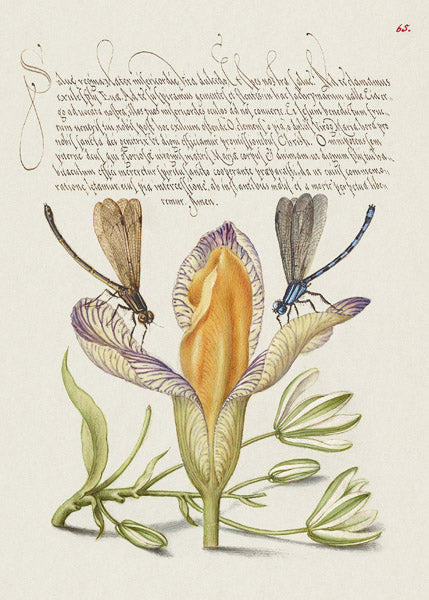 65.
Salve regina Mater misericordiae Vita dulcedo Et Spes nostra salve. Ad te clamamus
exules filij Eva. Ad te suspiramus gementes et flentes in hac lachrymarum valle Eia er-
go advocata nostra illos tuos misericordes oculos ad nos converte. Et Iesum benedictum fru-
ctum ventris tui nobis post hoc exilium ostende. O clemens o pia o dulcis Virgo Maria. Ora pro
nobis sancta dei Genitrix ut digni efficiamur promissionibus Christi. Omnipotens sem-
piterne deus qui gloriosae virginis matris Mariae corpus et animam ut dignum filij tui ha-
bitaculum effici mereretur spiritu sancto cooperante praeparasti, da ut cuius commemo-
ratione laetamur eius pia intercessione, ab instantibus malis et a morte perpetua libe-
remur Amen.